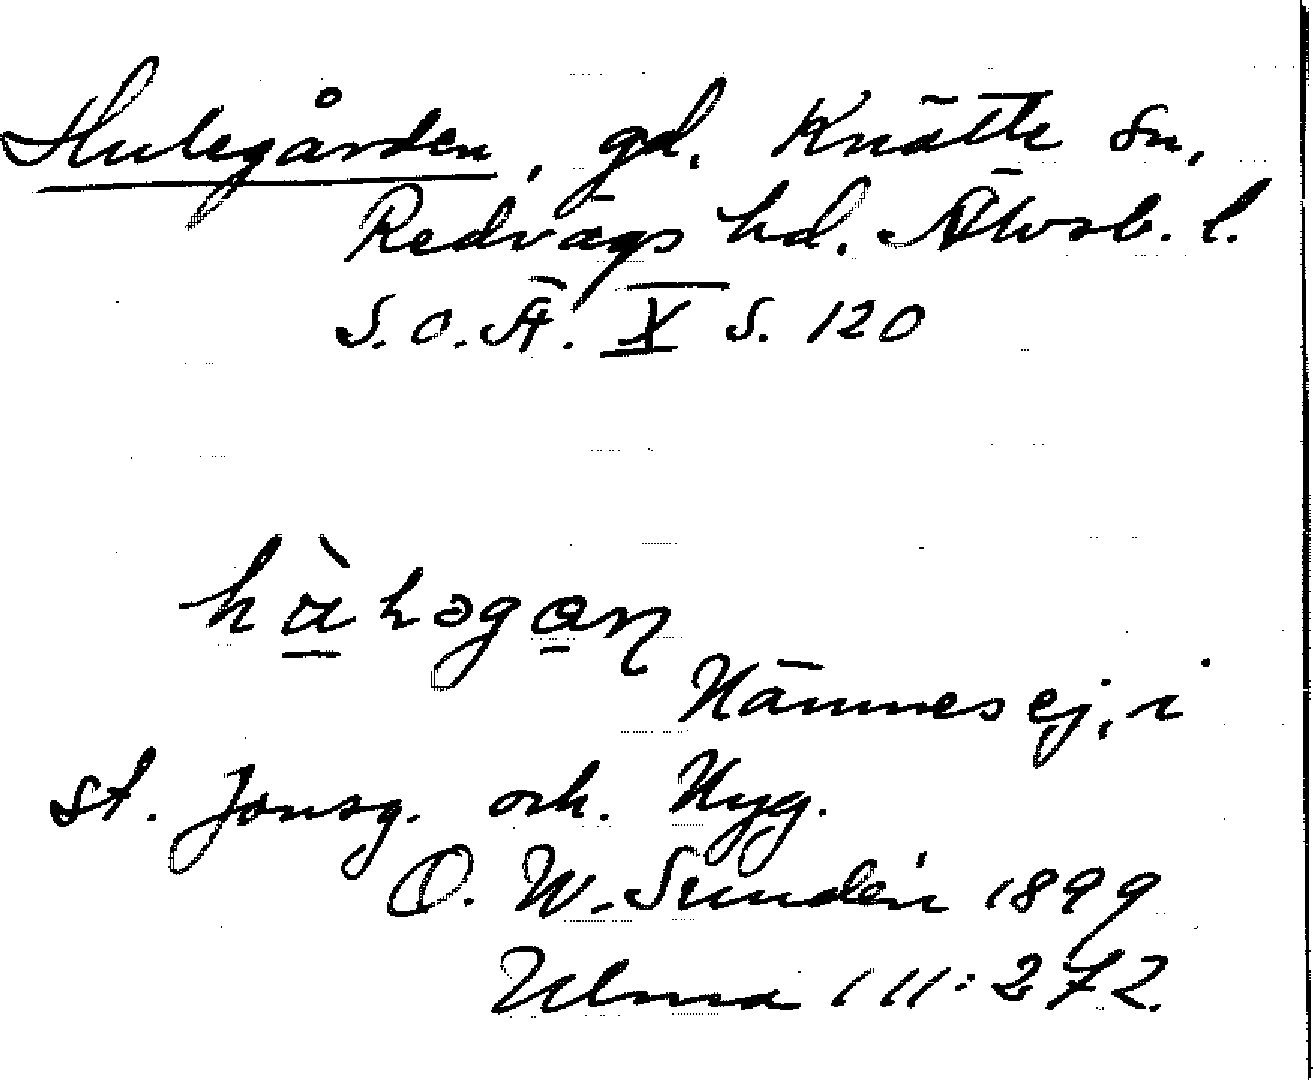 Hulegården, gd. Knätte sn,
Redvägs hd. Älvsb. l.
S.O.Ä. X S. 120
Nämnes ej, i
St. Jonsg. och. Nyg.
O. W. Sundén 1899
Ulma 111:272.